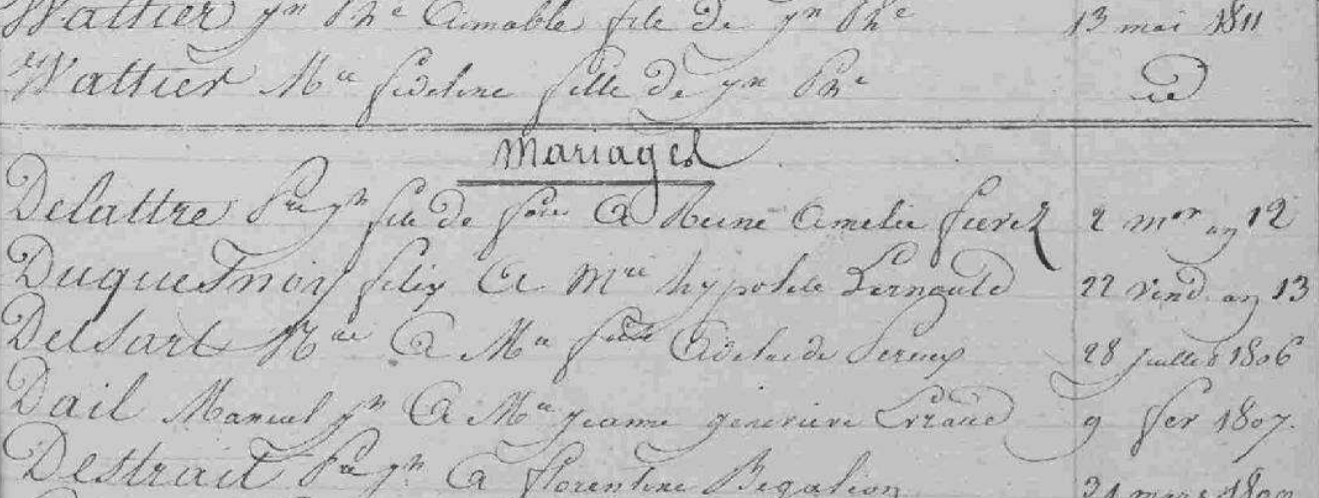 Wattier Jn Bte Aimable fils de Jn Bte 13 mai 1811
Wattier Mie fideline fille de Jn Bte id
Mariages
Delattre fils de A Reine Amelie fierez 2 mor an 12
Duquesnoy felix A Mie hypolite Lernould 22 vend. an 13
Delsart A Mie Adelaide 28 juillet 1806
Dail Manuel jh A Mie jeanne genevieve 9 fer 1807.
Destrait A florentine Begalion 31 mars